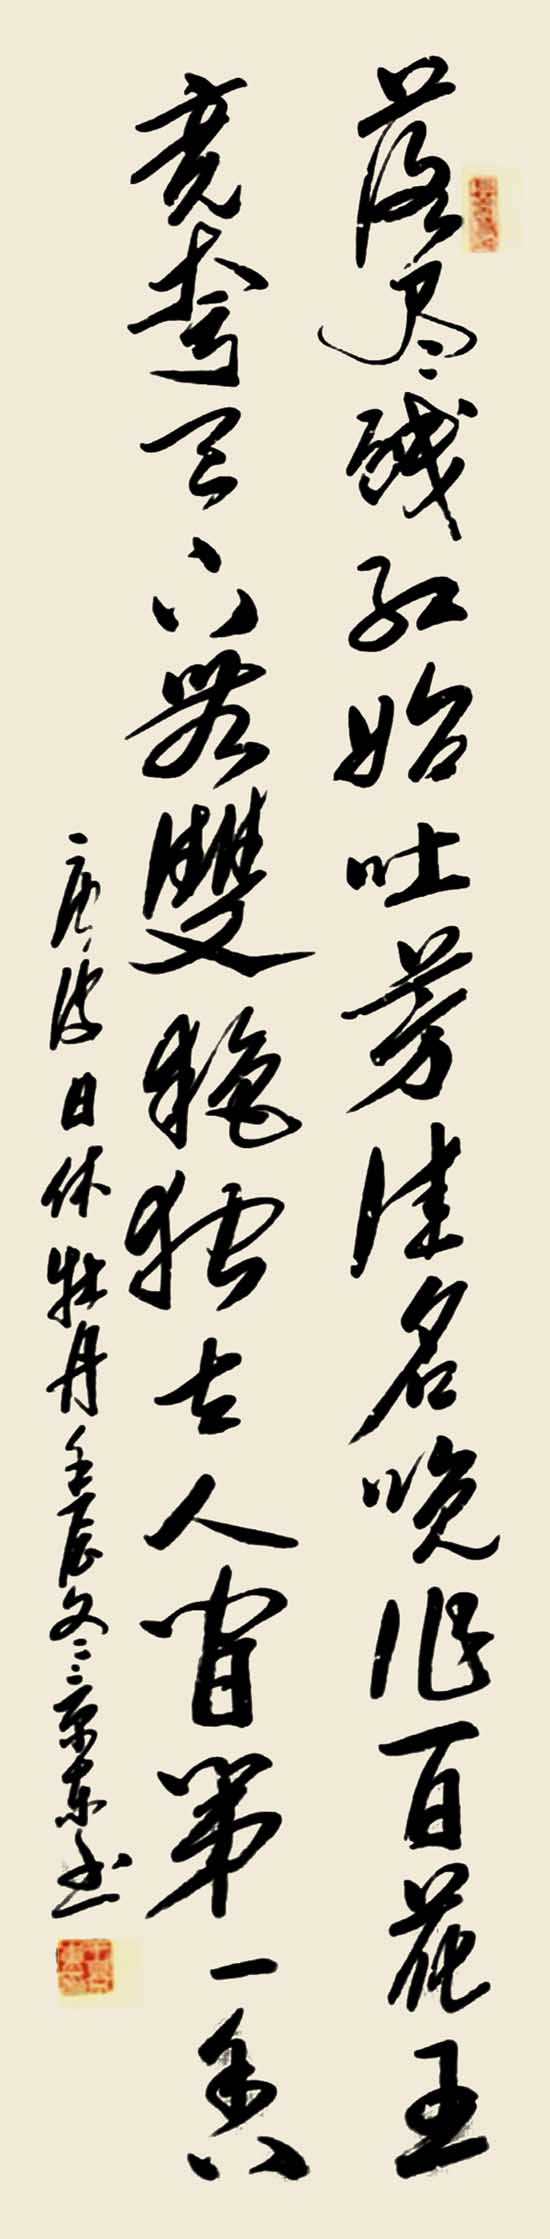 落尽残红始吐芳佳名唤作百花王
竞夸天下无雙艳独占人间第一香
唐皮日休牡丹壬辰冬京东书